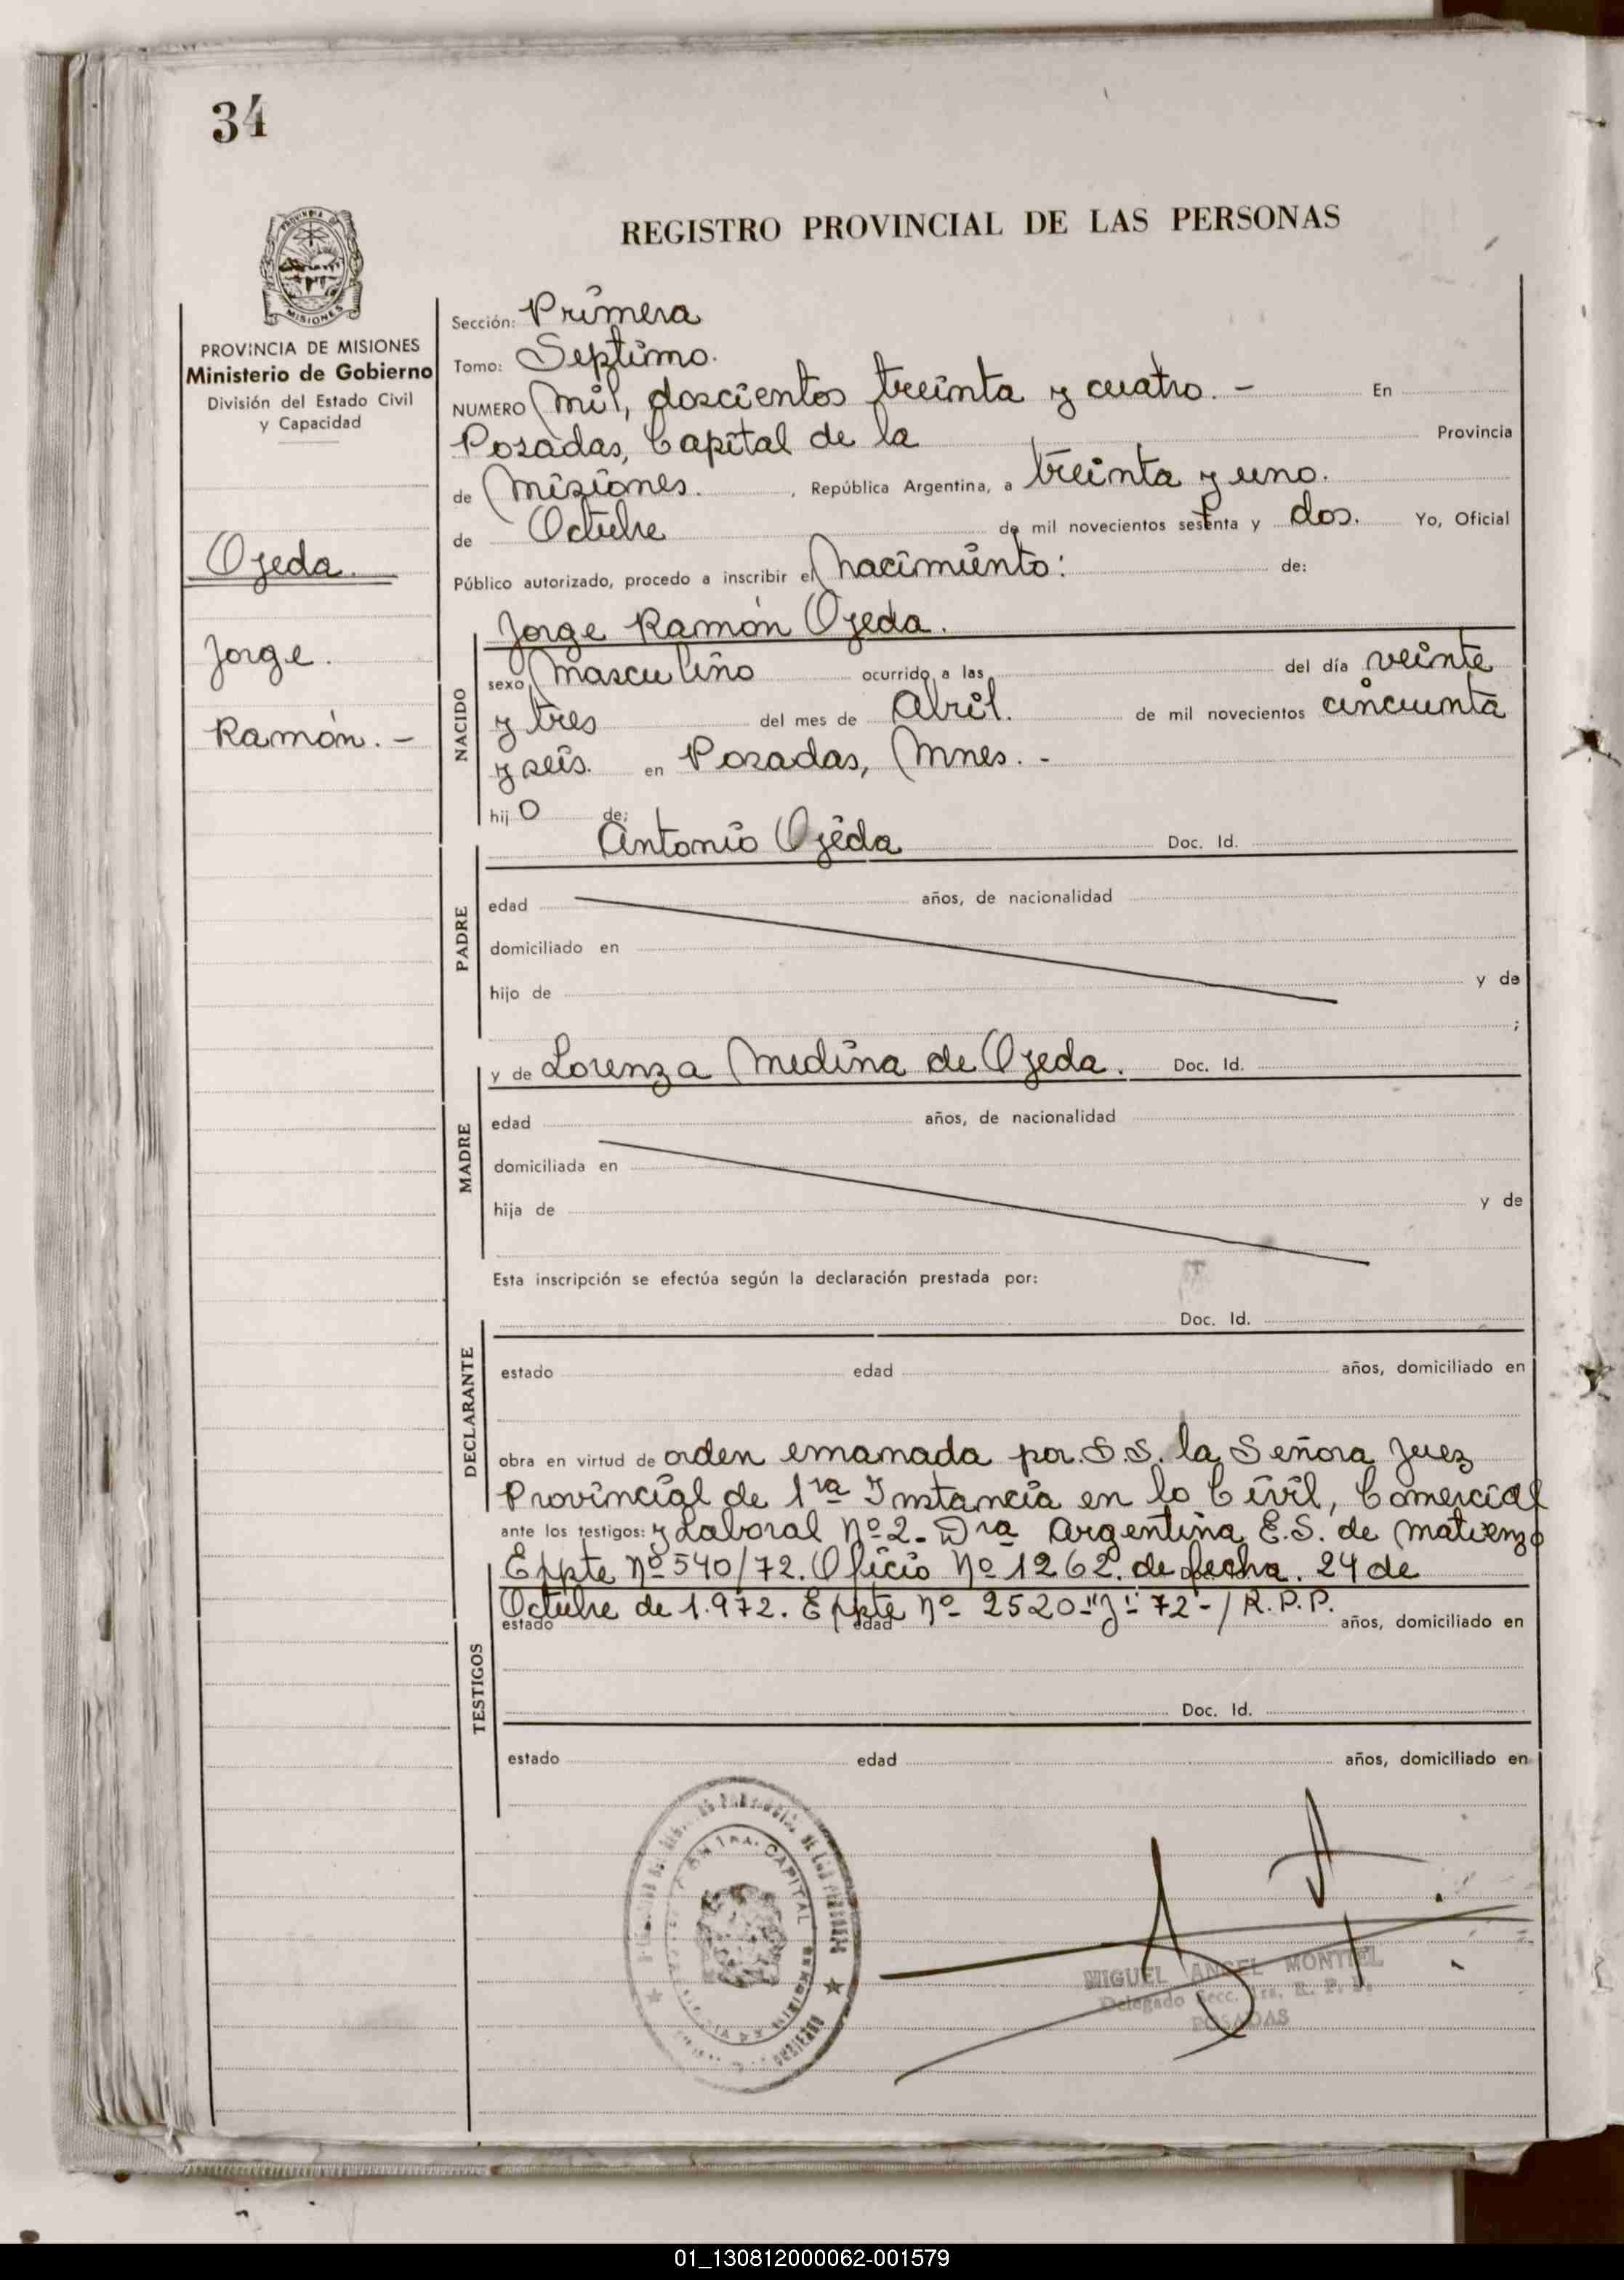 34
REGISTRO PROVINCIAL DE LAS PERSONAS
MISIONES
PROVINCIA DE MISIONES
Ministerio de Gobierno
División del Estado Civil
y Capacidad
Ojeda.
Jorge.
Ramón. -
Sección: Primera
Tomo: Septimo.
NUMERO Mil, doscientos treinta y cuatro. - En
Posadas, Capital de la Provincia
de Misiones. , República Argentina, a treinta y uno.
de Octubre de mil novecientos setenta y dos. Yo, Oficial
Público autorizado, procedo a inscribir el Nacimiento: de:
Jorge Ramón Ojeda.
NACIDO
sexo Masculino ocurrido a las del día veinte
y tres del mes de Abril. de mil novecientos cincuenta
y seis. en Posadas, Mnes. -
hij o de:
PADRE
Antonio Ojeda Doc. Id.
edad años, de nacionalidad
domiciliado en
hijo de y de
;
MADRE
y de Lorenza Medina de Ojeda. Doc. Id.
edad años, de nacionalidad
domiciliada en
hija de y de
Esta inscripción se efectúa según la declaración prestada por:
Doc. Id.
DECLARANTE
estado edad años, domiciliado en
obra en virtud de orden emanada por. S.S. la Señora Juez
Provincial de 1ra Instancia en lo Civil, Comercial
ante los testigos: y Laboral Nº 2- Dra Argentina E.S. de Matienzo
Eppte Nº 540/72. Oficio Nº 1262. de fecha. 24 de
Octubre de 1.972. Eppte Nº 2520-"J"- 72-/ R.P.P.
TESTIGOS
estado edad años, domiciliado en
Doc. Id.
estado edad años, domiciliado en
CAPITAL
MIGUEL ANGEL MONTIEL
Delegado Secc. 1ra. R. P. P.
POSADAS
01_130812000062-001579